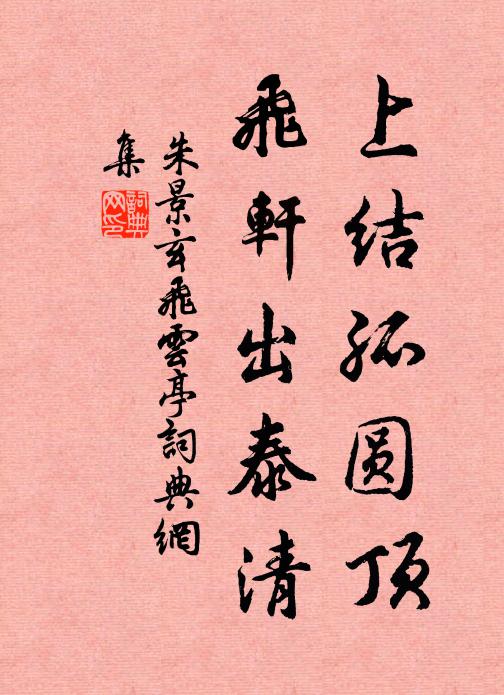 上结孤圆顶
飛軒出泰清
朱景玄飛雲亭詞典網
集
詞典
网印